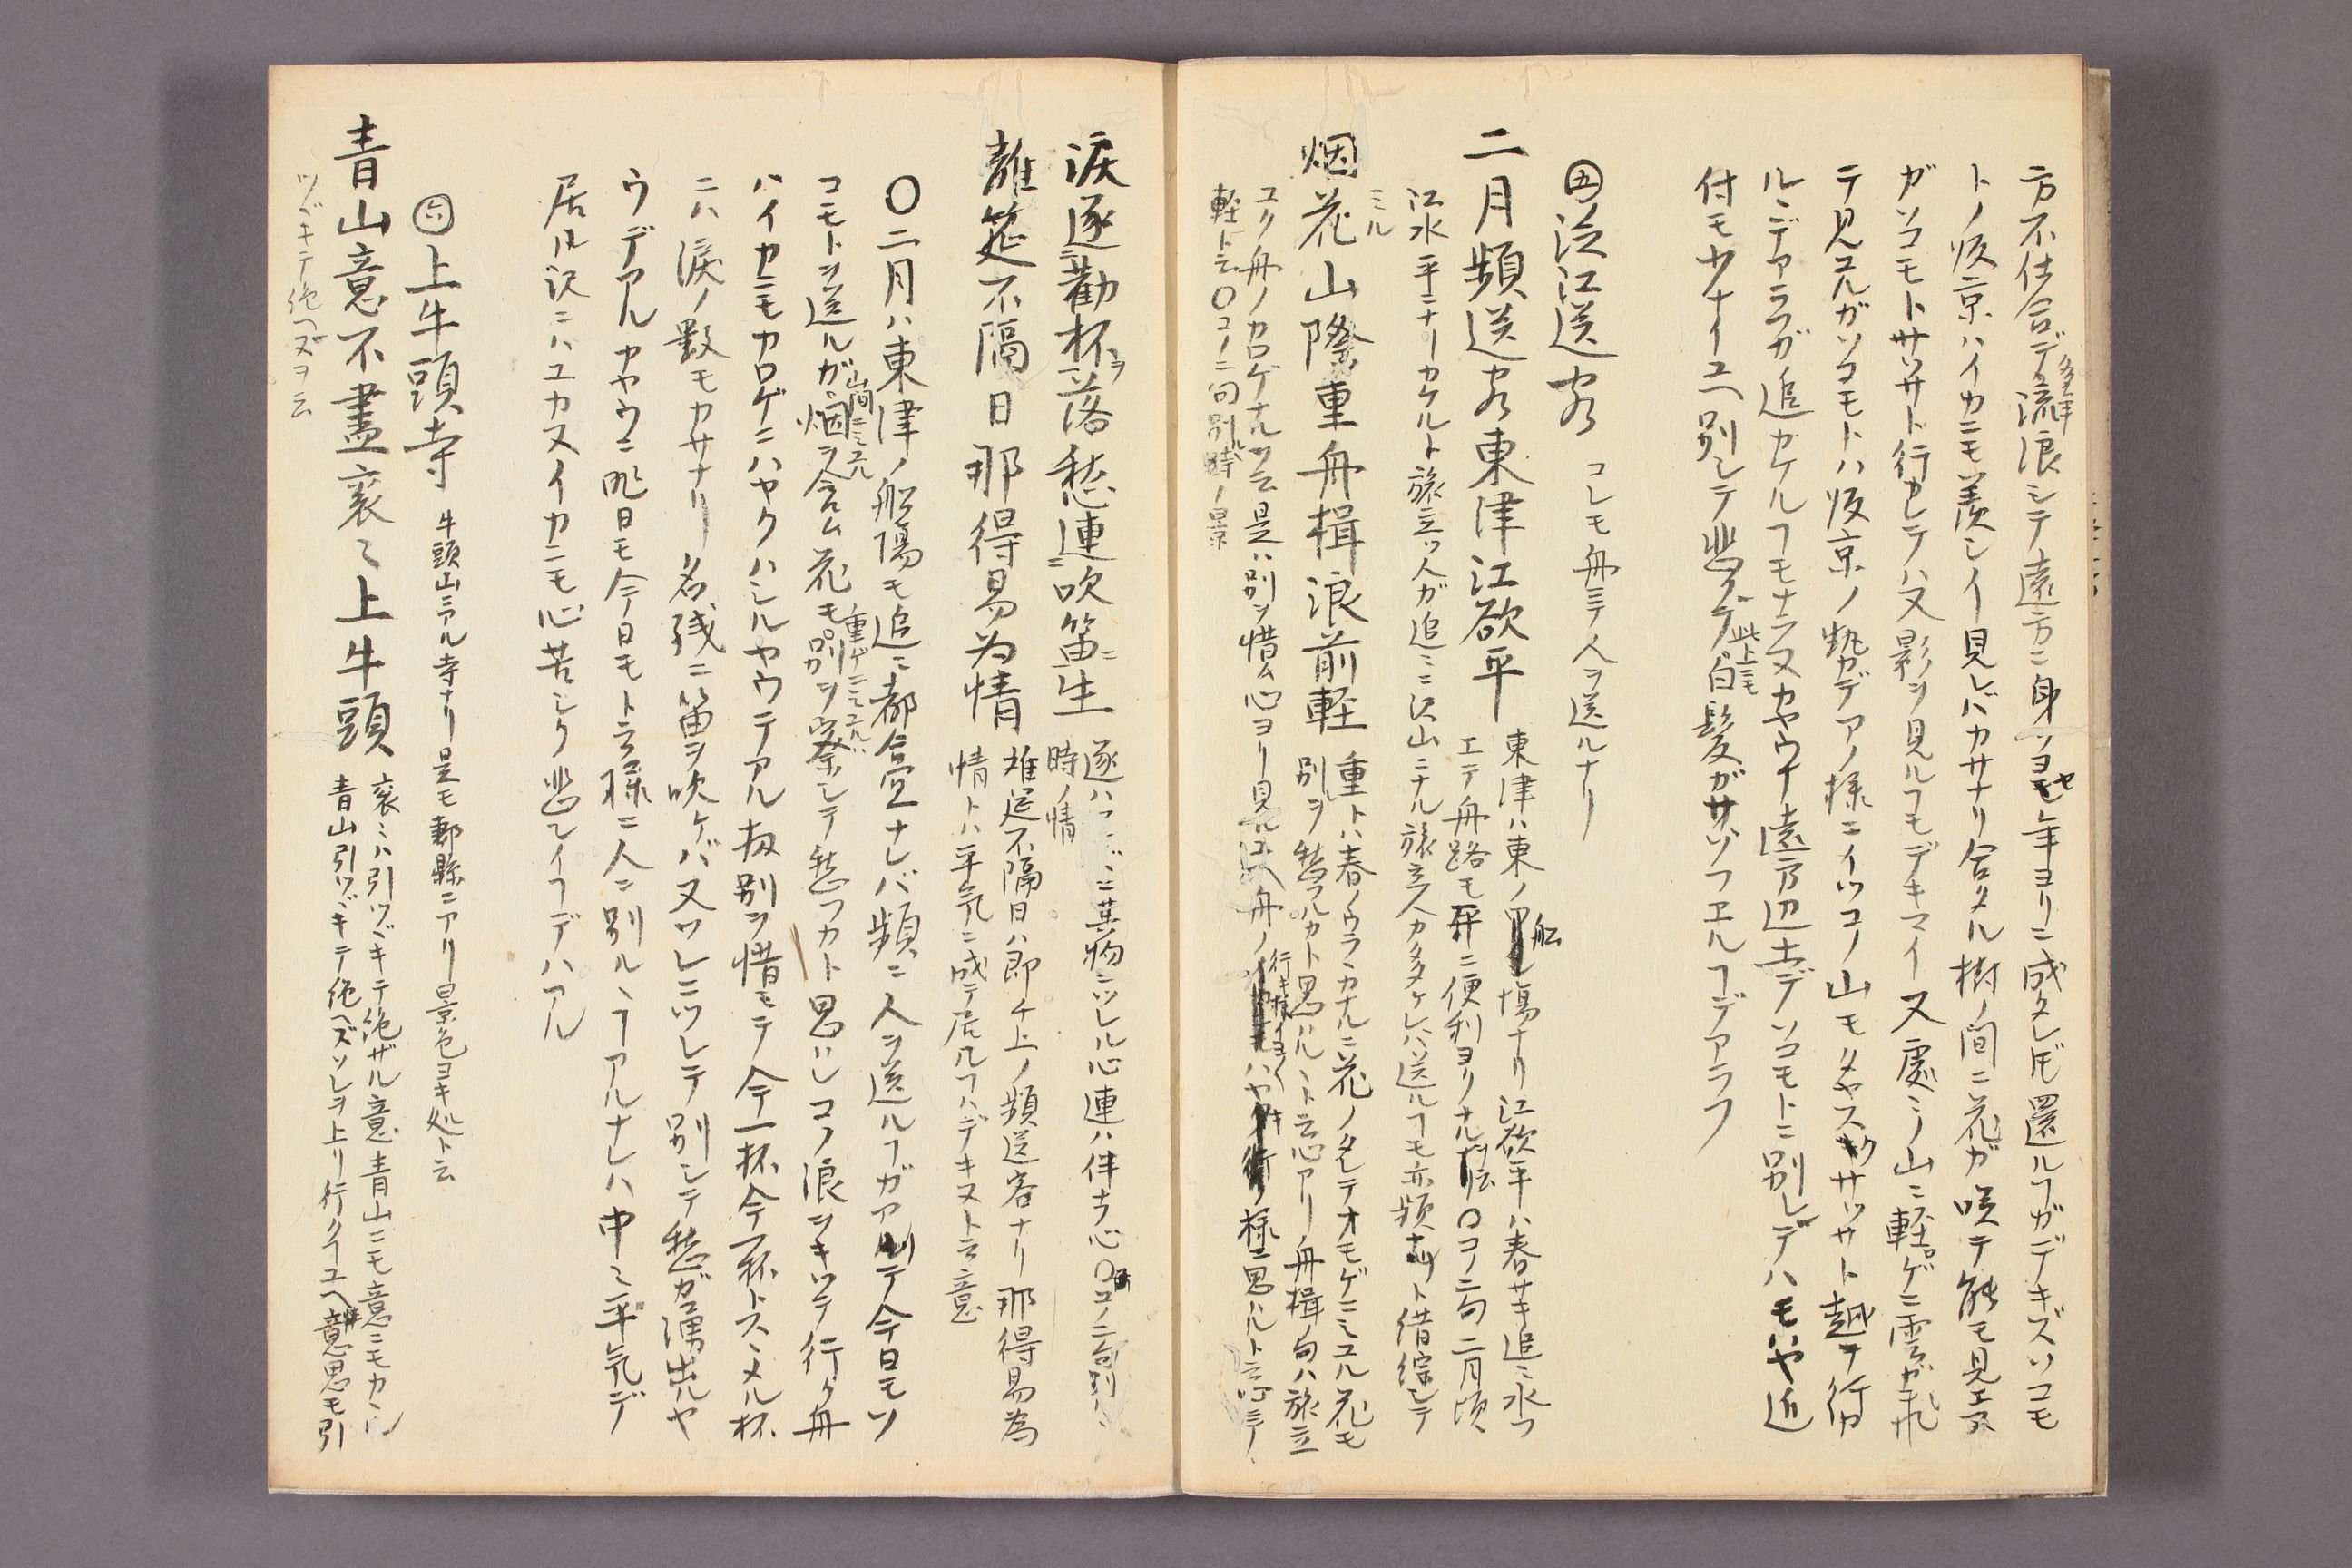 方不仕合デ流浪シテ遠方ニ身ヲヨセ年ヨリニ成タレ𪜈還ルヿガデキズソコモ
多年
トノ皈京ハイカニモ羨シイ見レバカサナリ合タル樹ノ間ニ花ガ咲テ能モ見エズ
ガソコモトサツサト行カレテハ又影ヲ見ルヿモデキマイ又處〻ノ山ニ軽ゲニ雲ガ
テ見ユルガソコモトハ皈京ノ勢デアノ様ニイツコノ山モタヤスクサツサト越テ行カ
ルヽデアラフガ追カケルヿモナラヌカヤウナ遠方辺土デソコモトニ別レデハモハヤ近
付モナイユヘ別レテ悲クテ白髪ガサゾフエルヿデアラフ
此上ニモ
㊄泛江送客 コレモ舟ニテ人ヲ送ルナリ
二月頻送客東津江欲平
東津ハ東ノ船場ナリ江欲平ハ春サキ追〻水フ
エテ舟路モ平ニ便利ヨリナル○コノ二句二月頃
江水平ニナリカケルト旅立ツ人ガ追〻ニ沢山ニナル旅立人カ多ケレハ送ルヿモ亦頻ナリト借綜シテ
ミル
烟花山際重舟楫浪前軽
重トハ春ノウラヽカナルニ花ノタレテオモゲニミユル花モ
別ヲ愁フルカト思ハルヽト云心アリ舟楫ノ句ハ旅立
ユク舟ノカロゲナルヲ云是ハ別ヲ惜ム心ヨリ見ルユヘ舟ノ行キ様ニ思ハルヽト云心ニテ
軽ト云○コノ二句別ル時ノ景
涙逐勸杯落愁連吹笛生
逐ハ其物ニツレル心連ハ伴ナフ心○コノ二句別ルヽ
時ノ情
離筵不隔日那得易为情
难筵不隔日ハ即チ上ノ頻送客ナリ那得易為
情トハ平気ニ成テ居ルヿハデキヌト云意
○二月ハ東津ノ船場モ追〻都合宜ナレバ頻ニ人ヲ送ルヿガアルテ今日モソ
コモトヲ送ルガ烟ヲ含ム花モ別ヲ察シテ愁フカト思ハレコノ浪ヲキツテ行ク舟
山間ニミユル
重ゲニミユル
ハイカニモカロゲニハヤクハシルヤウテアル扨別ヲ惜モテ今一杯今一杯トスヽメル杯
ニハ涙ノ数モカサナリ名残ニ笛ヲ吹ケバ又ソレニツレテ別レテ愁ガ湧出ルヤ
ウデアルカヤウニ昨日モ今日モトラ様ニ人ニ別ルヽヿアルナレハ中〻平気デ
居ル沢ニハユカヌイカニモ心苦シク悲シイヿデハアル
㊅上牛頭寺 牛頭山ニアル寺ナリ是モ郪縣ニアリ景色ヨキ処ト云
青山意不盡衮〻上牛頭
衮〻ハ引ツヾキテ絶ザル意青山ニモ意ニモカヽル
青山引ツヾキテ絶ヘズソレヲ上リ行クユヘ意思モ引
ツヾキテ絶ヘヌヲ云